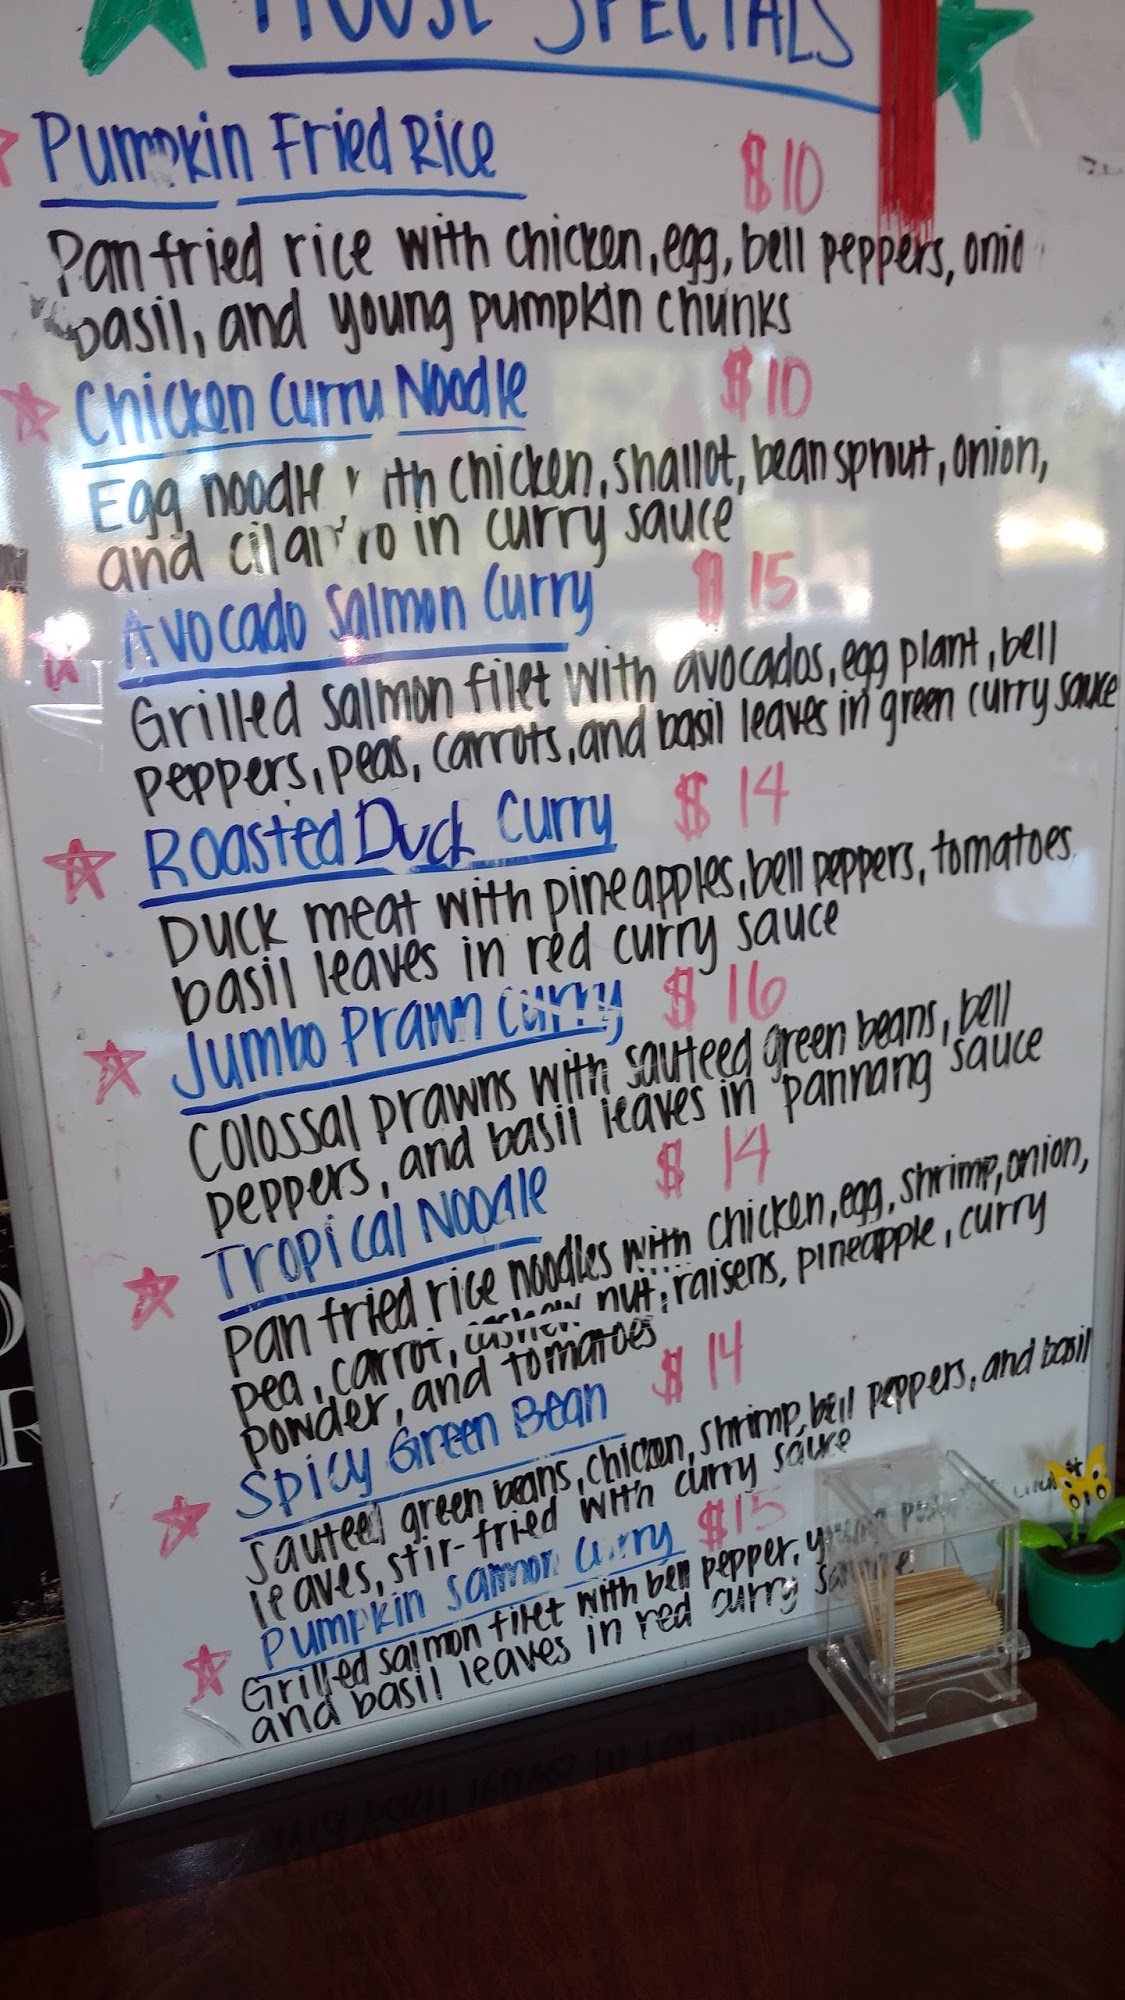 HOUSE SPECIALS
Pumpkin Fried Rice $10
Pan fried rice with chicken, egg, bell peppers, onio
basil, and young pumpkin chunks
Chicken Curry Noodle $10
Egg noodle with chicken, shallot, bean sprout, onion,
and cilantro in curry sauce
Avocado Salmon Curry $15
Grilled salmon filet with avocados, egg plant, bell
peppers, peas, carrots, and basil leaves in green curry sauce
Roasted Duck Curry $14
Duck meat with pineapples, bell peppers, tomatoes,
basil leaves in red curry sauce
Jumbo Prawn Curry $16
Colossal prawns with sauteed green beans, bell
peppers, and basil leaves in pannang sauce
Tropical Noodle $14
Pan fried rice noodles with chicken, egg, shrimp, onion,
pea, carrot, cashew nut, raisens, pineapple, curry
powder, and tomatoes
Spicy Green Bean $14
Sauteed green beans, chicken, shrimp, bell peppers, and basil
leaves, stir-fried with curry sauce
Pumpkin Salmon Curry $15
Grilled salmon filet with bell pepper, young
and basil leaves in red curry sauce